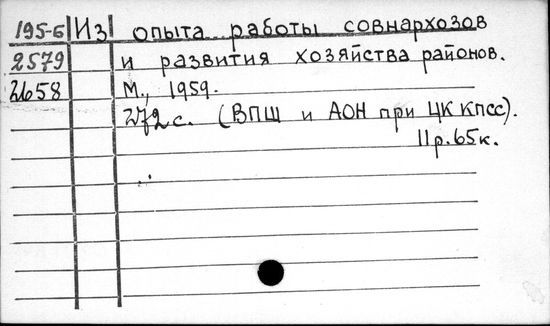 195-6 Из опыта работы совнархозов
2579 и развития хозяйства районов.
2658 М., 1959.
с. (ВПШ и АОН при ЦК КПСС).
11р.65к.